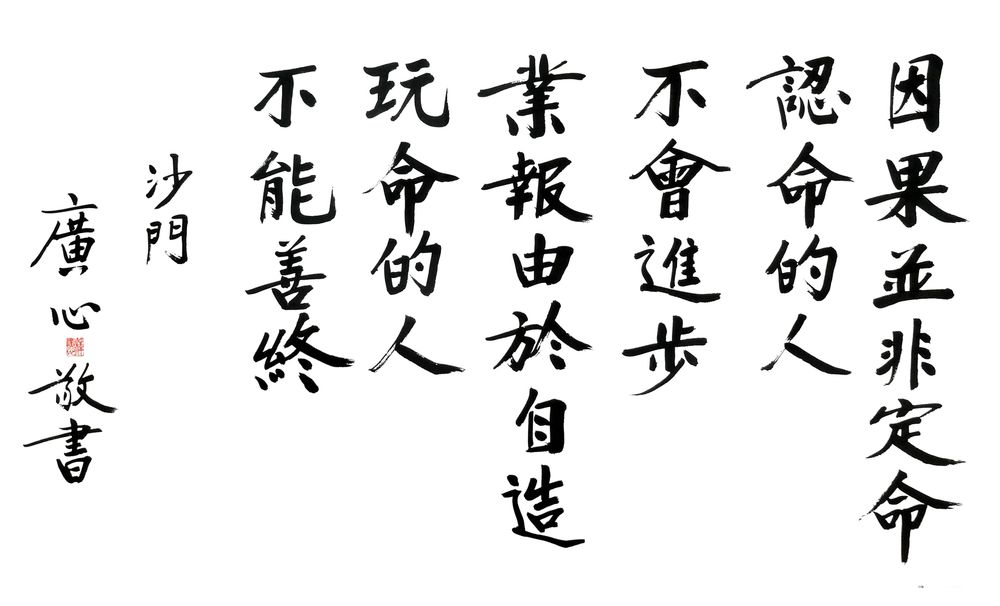 因果並非定命
認命的人
不會進步
業報由於自造
玩命的人
不能善終
沙門
廣心敬書